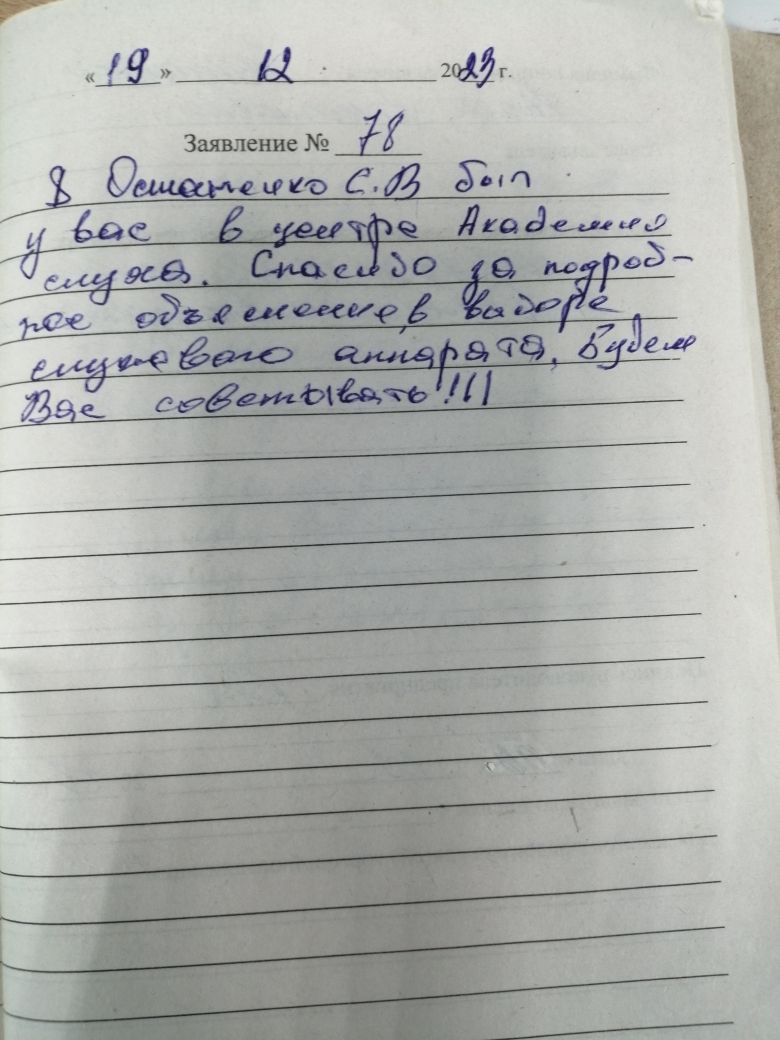 «19» 12 2023 г.
Заявление № 78
Я Остапенко С.В был
у вас в центре Академия
слуха. Спасибо за подроб-
ное объяснение, в выборе
слухового аппарата. Будем
Вас советывать!!!